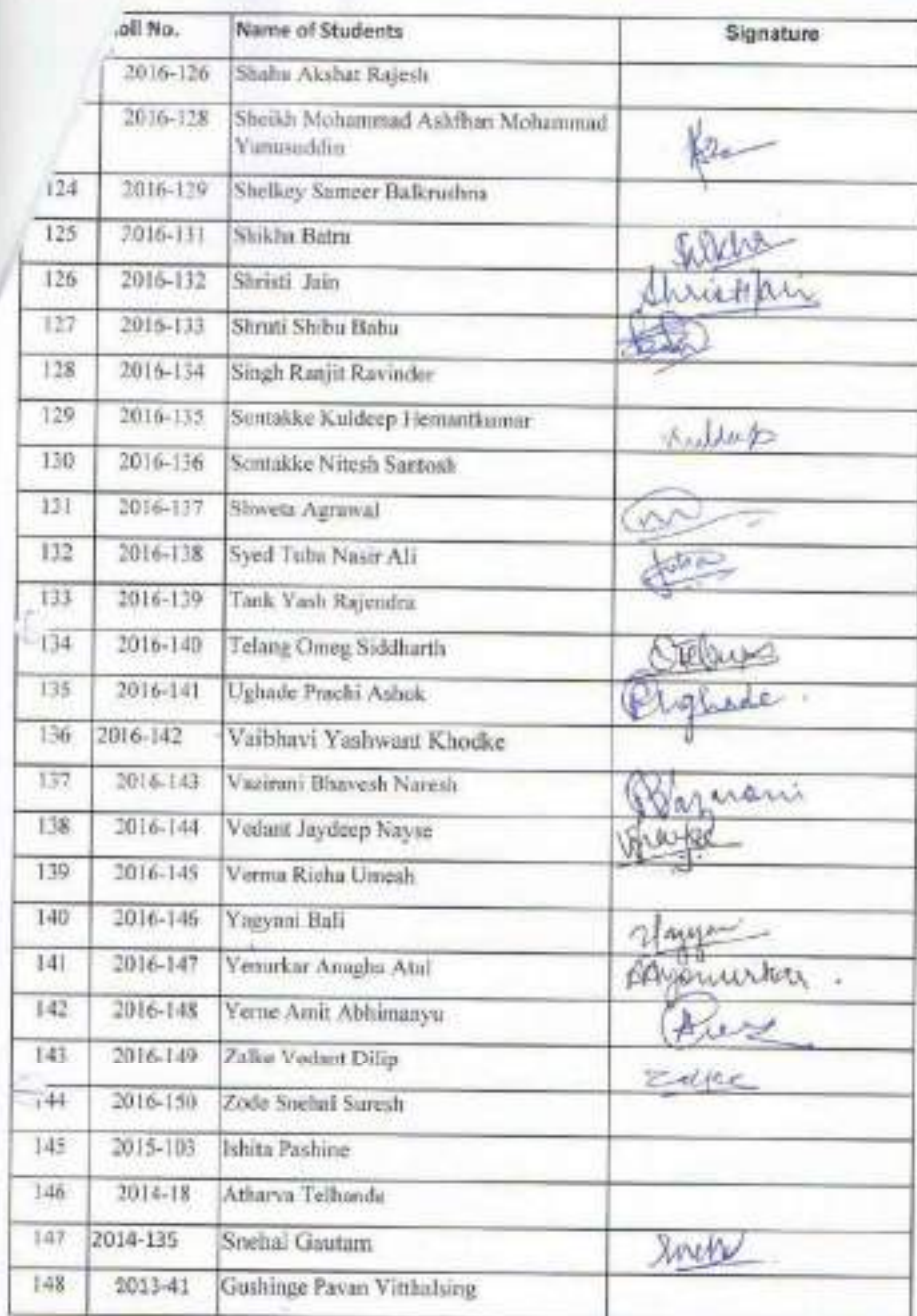 oll No. Name of Students Signature
2016-126 Shahu Akshat Rajesh
2016-128 Sheikh Mohammad Ashfhan Mohammad
Yunusuddin
124 2016-129 Shelkey Sameer Balkrushna
125 2016-131 Shikha Batra Shikha
126 2016-132 Shristi Jain Shristi Jain
127 2016-133 Shruti Shibu Babu
128 2016-134 Singh Ranjit Ravinder
129 2016-135 Sontakke Kuldeep Hemantkumar Kuldeep
130 2016-136 Sontakke Nitesh Santosh
131 2016-137 Shweta Agrawal
132 2016-138 Syed Tuba Nasir Ali
133 2016-139 Tank Yash Rajendra
134 2016-140 Telang Omeg Siddharth
135 2016-141 Ughade Prachi Ashok PUghade.
136 2016-142 Vaibhavi Yashwant Khodke
137 2016-143 Vazirani Bhavesh Naresh BVazirani
138 2016-144 Vedant Jaydeep Nayse
139 2016-145 Verma Richa Umesh
140 2016-146 Yagyani Bali
141 2016-147 Yenurkar Anagha Atul AAYenurkar.
142 2016-148 Yerne Amit Abhimanyu
143 2016-149 Zalke Vedant Dilip Zalke
144 2016-150 Zode Snehal Suresh
145 2015-103 Ishita Pashine
146 2014-18 Atharva Telhande
147 2014-135 Snehal Gautam
148 2013-41 Gushinge Pavan Vitthalsing